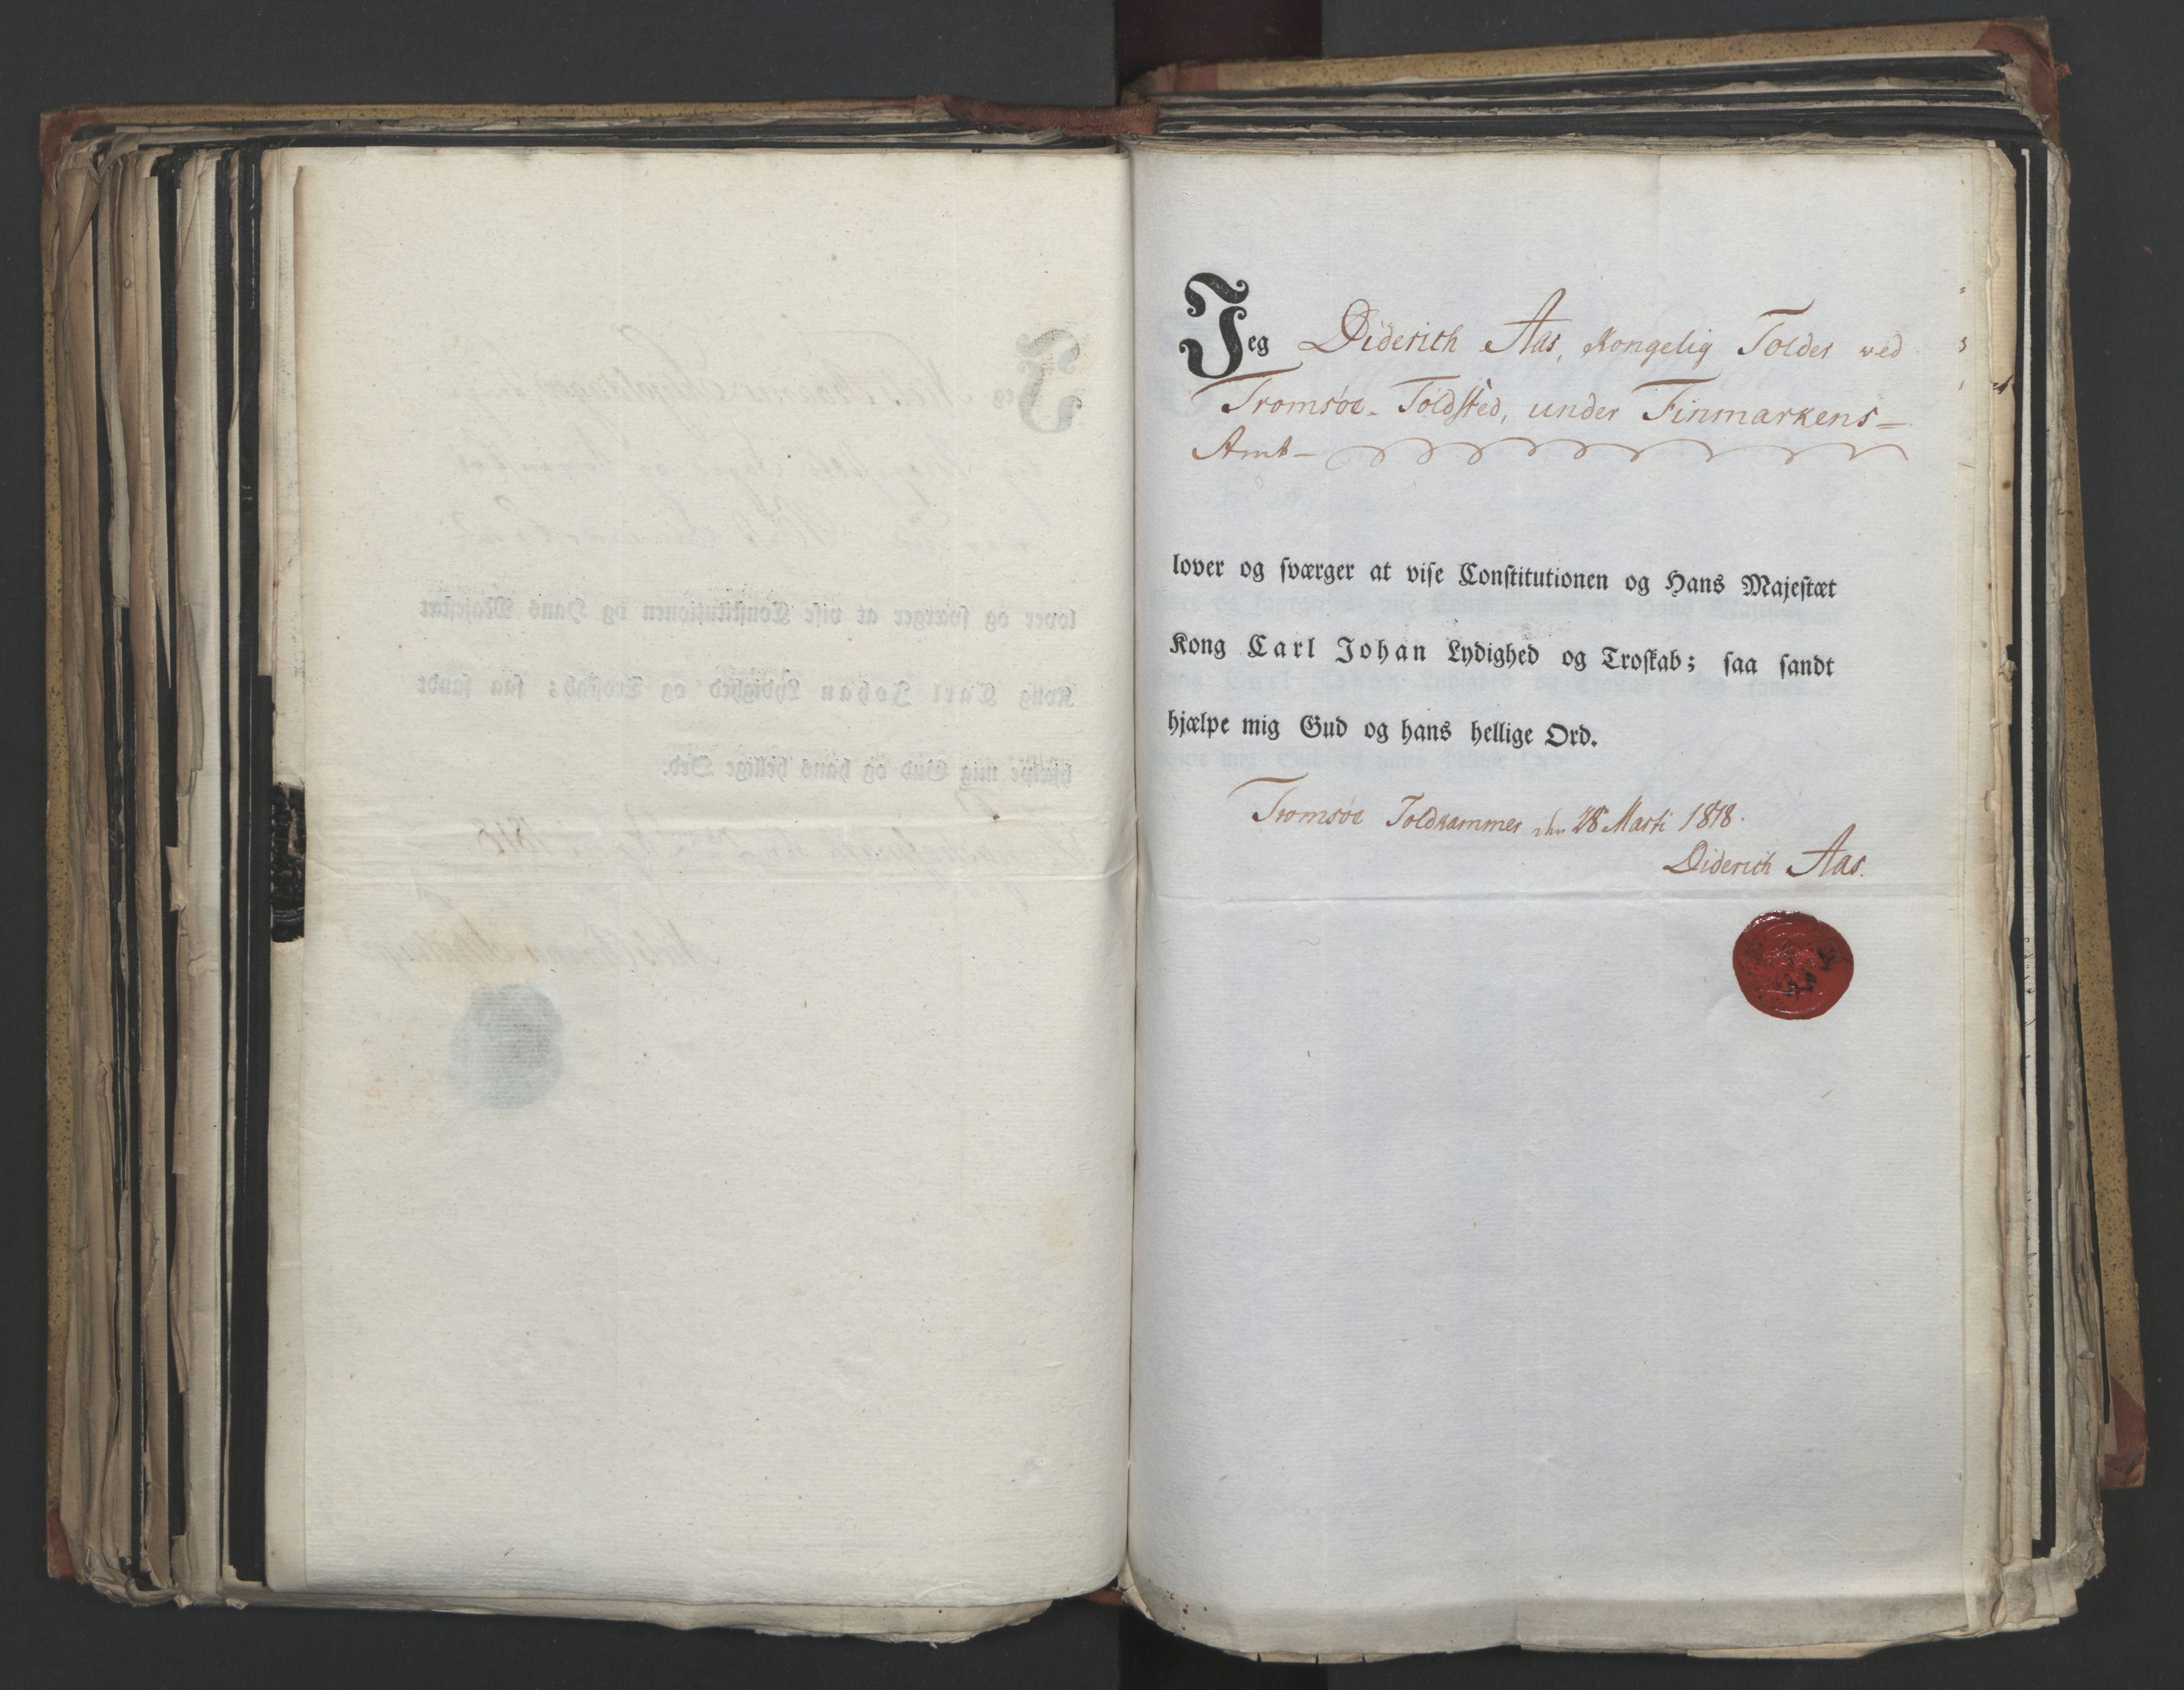 Jeg Diderich Aas, Kongelig Tolder ved
Tromsøe Toldsted, under Finmarkens-
Amt-
lover og sværger at vise Constitutionen og Hans Majestæt
Kong Carl Johan Lydighed og Troskab; saa sandt
hjælpe mig Gud og hans hellige Ord.
Tromsøe Toldkammer den 28 Marti 1818.
Diderich Aas.